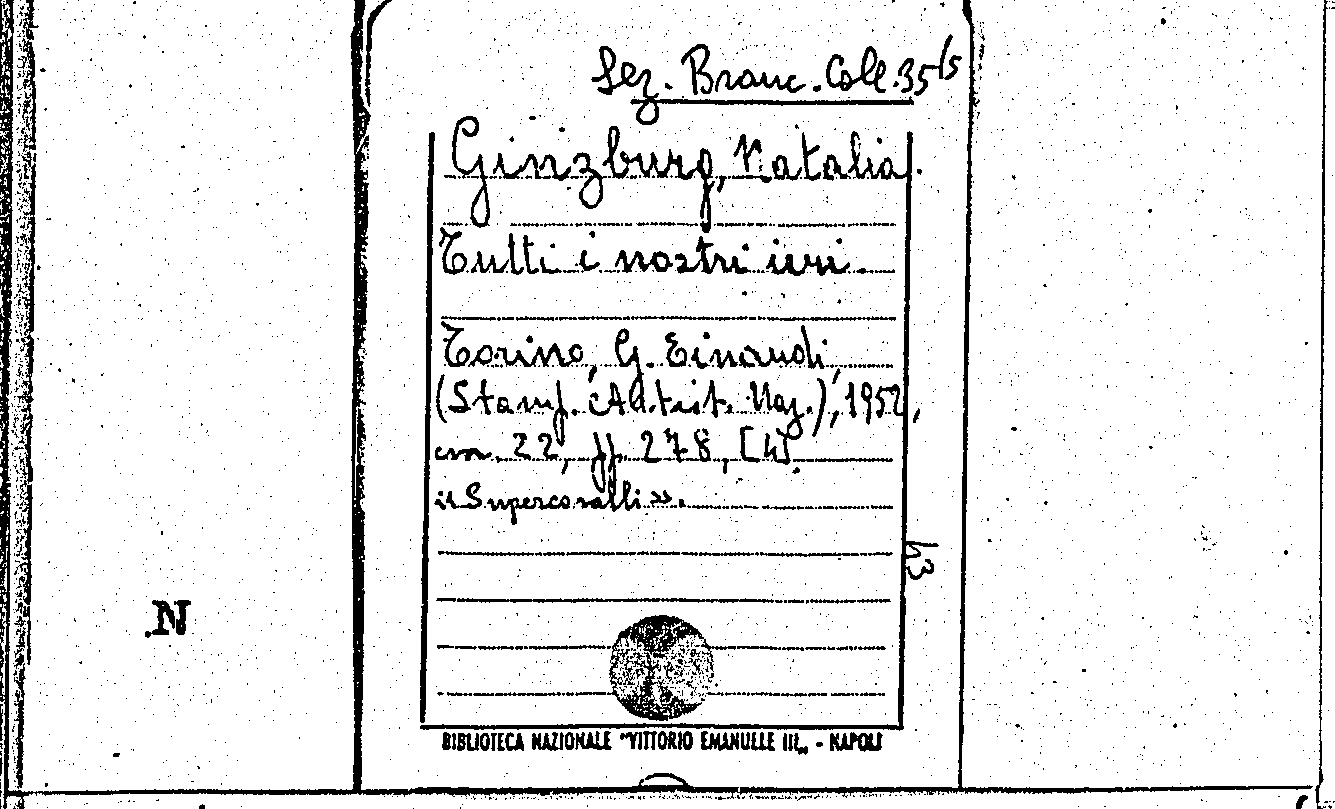 Sez. Branc. Coll. 35/5
Ginzburg, Natalia.
Tutti i nostri ieri.
Torino, G. Einaudi,
(Stamp. Artist. Naz.), 1952,
cm. 22, pp. 278, [4].
«Supercoralli».
43
N
BIBLIOTECA NAZIONALE "VITTORIO EMANUELE III„ - NAPOLI